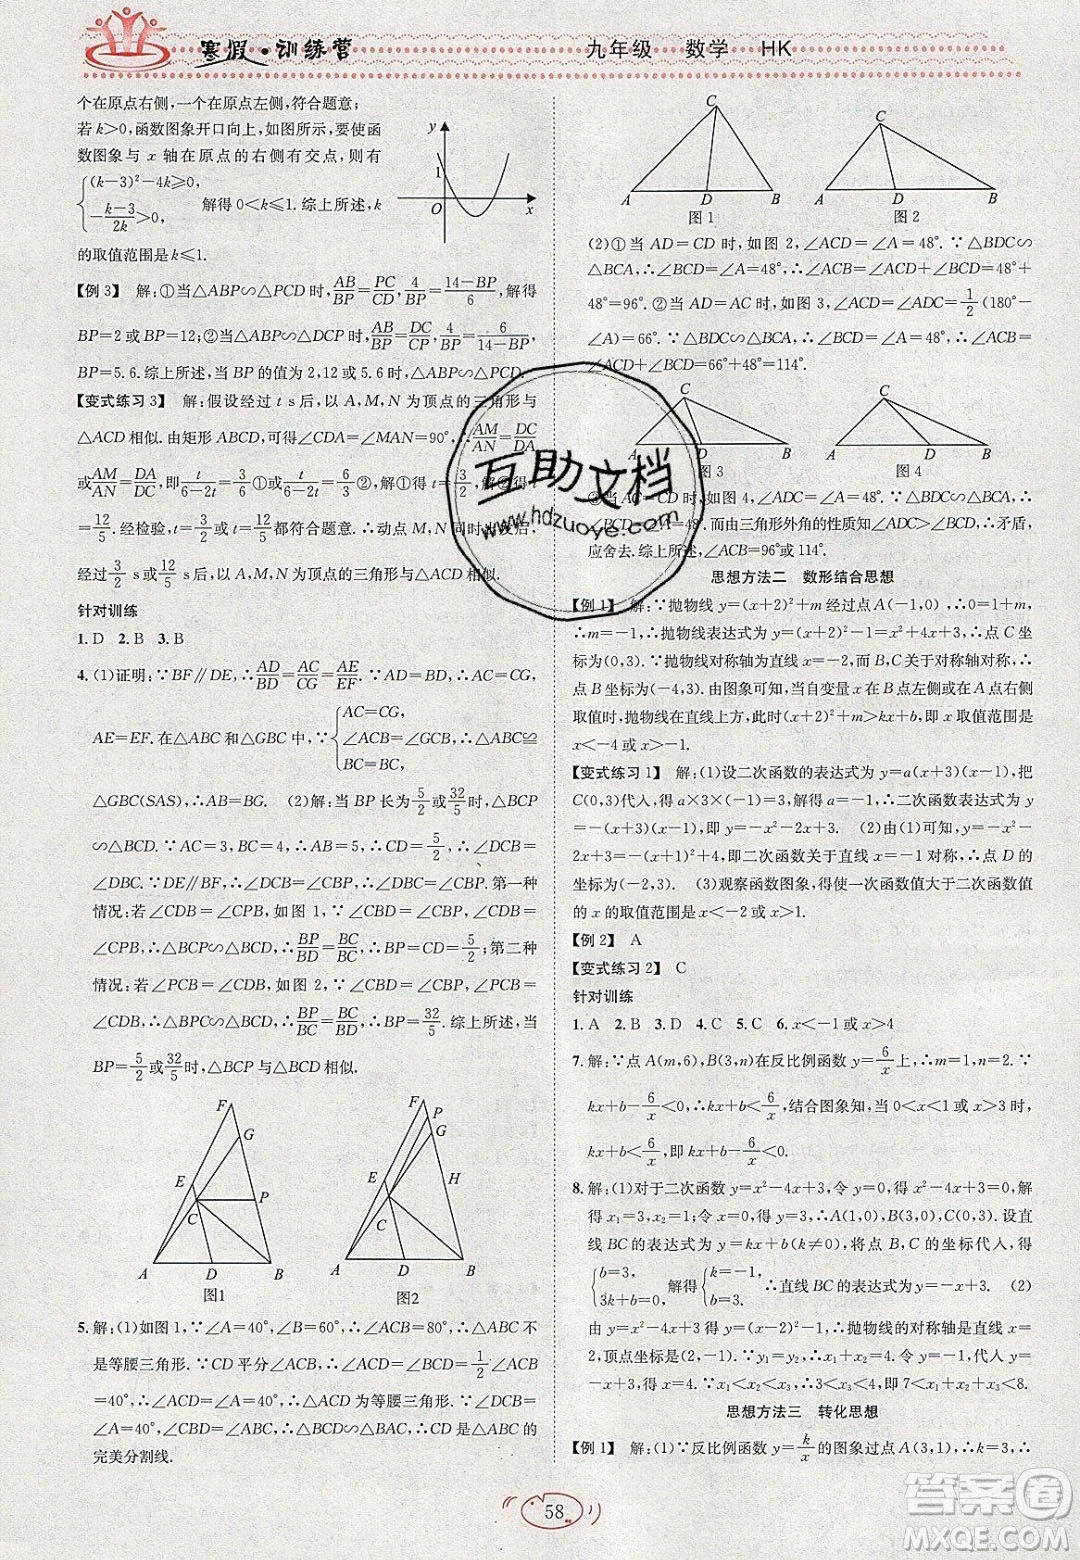 寒假·训练营
九年级 数学 HK
个在原点右侧,一个在原点左侧,符合题意;
若 k>0,函数图象开口向上,如图所示,要使函
数图象与 x 轴在原点的右侧有交点,则有
{(k-3)²-4k≥0, -(k-3)/(2k)>0, 解得 0<k≤1. 综上所述,k
的取值范围是 k≤1.
y
1
O
x
【例 3】 解:①当△ABP∽△PCD 时,AB/BP=PC/CD,4/BP=(14-BP)/6,解得
BP=2 或 BP=12;②当△ABP∽△DCP 时,AB/BP=DC/CP,4/BP=6/(14-BP),
BP=5.6. 综上所述,当 BP 的值为 2,12 或 5.6 时,两三角形相似.
【变式练习 3】 解:假设经过 t s 后,以 A,M,N 为顶点的三角形与
△ACD 相似.由矩形 ABCD,可得∠CDA=∠MAN=90°,∴AM/AN=DC/DA
或AM/AN=DA/DC,即t/(6-2t)=6/3①或t/(6-2t)=3/6②,解①得t=3/2
=12/5. 经检验,t=3/2或 t=12/5都符合题意.∴动点 M,N 同时出发后,
经过3/2 s或12/5 s后,以 A,M,N 为顶点的三角形与△ACD 相似.
针对训练
1. D 2. B 3. B
4. (1)证明:∵BF∥DE,∴AD/BD=AC/CG=AE/EF. ∵AD=BD,∴AC=CG,
AE=EF. 在△ABC 和△GBC 中,∵{AC=CG, ∠ACB=∠GCB, BC=BC, ∴△ABC≌
△GBC(SAS). (2)解:当 BP 长为5/2或32/5时,△BCP
∽△BCD. ∵AC=3,BC=4,∴AB=5,∴CD=5/2,∴∠DCB=
∠DBC. ∵BF∥DE,∴∠DCB=∠CBP,∴∠DBC=∠CBP. 第一种
情况:若∠CDB=∠CPB,如图 1,∵∠CBP=∠CBD,∠CDB=
∠CPB,∴△BCP∽△BCD,∴BP/BD=BC/BC,∴BP=CD=5/2;第二种
情况:若∠PCB=∠CDB,如图 2,∵∠CBD=∠PBC,∴∠CDB=
∠PCB,∴△BCP∽△BDC,∴BP/BC=BC/BD,∴BP=32/5. 综上所述,当
BP=5/2或32/5时,△BCP 与△BCD 相似.
F
G
E
C
P
A
D
B
图1
F
P
G
E
H
C
A
D
B
图2
5. 解:(1)如图 1,∵∠A=40°,∠B=60°,∴∠ACB=80°,∴△ABC 不
是等腰三角形.∵CD 平分∠ACB,∴∠ACD=∠BCD=1/2∠ACB
=40°,∴∠ACD=∠A=40°,∴△ACD 为等腰三角形.∵∠DCB=
∠A=40°,∠CBD=∠ABC,∴△BCD∽△BAC,∴CD 是△ABC 的
完美分割线.
C
A
D
B
图 1
C
A
D
B
图 2
(2)①当 AD=CD 时,如图 2,∠ACD=∠A=48°. ∵△BDC∽
△BCA,∴∠BCD=∠A=48°,∴∠ACB=∠ACD+∠BCD=48°+
48°=96°. ②当 AD=AC 时,如图 3,∠ACD=∠ADC=1/2(180°-
∠A)=66°. ∵△BDC∽△BCA,∴∠BCD=∠A=48°,∴∠ACB=
∠ACD+∠BCD=66°+48°=114°.
C
A
D
B
图 3
C
A
D
B
图 4
③当 AC=CD 时,如图 4,∠ADC=∠A=48°. ∵△BDC∽△BCA,∴
∠BCD=∠A=48°. 而由三角形外角的性质知∠ADC>∠BCD,∴矛盾,
应舍去.综上所述,∠ACB=96°或 114°.
思想方法二 数形结合思想
【例 1】 解:∵抛物线 y=(x+2)²+m 经过点 A(-1,0),∴0=1+m,
∴m=-1,∴抛物线表达式为 y=(x+2)²-1=x²+4x+3,∴点 C 坐
标为(0,3). ∵抛物线对称轴为直线 x=-2,B,C 关于对称轴对称,∴
点 B 坐标为(-4,3). 由图象可知,当自变量 x 在点 B 左侧或在点 A 右侧
取值时,抛物线在直线上方,此时(x+2)²+m>kx+b,即 x 取值范围是
x<-4 或 x>-1.
【变式练习 1】 解:(1)设二次函数的表达式为 y=a(x+3)(x-1),把
C(0,3)代入,得 a×3×(-1)=3,解得 a=-1,∴二次函数表达式为 y
=-(x+3)(x-1),即 y=-x²-2x+3. (2)由(1)可知,y=-x²-2x
+3=-(x+1)²+4,即二次函数关于直线 x=-1 对称,∴点 D 的
坐标为(-2,3). (3)观察函数图象,得使一次函数值大于二次函数值
的 x 的取值范围是 x<-2 或 x>1.
【例 2】 A
【变式练习 2】 C
针对训练
1. A 2. B 3. D 4. C 5. C 6. x<-1 或 x>4
7. 解:∵点 A(m,6),B(3,n)在反比例函数 y=6/x上,∴m=1,n=2. ∵
kx+b-6/x<0,∴kx+b<6/x,结合图象知,当 0<x<1 或 x>3 时,
kx+b<6/x,即 kx+b-6/x<0.
8. 解:(1)对于二次函数 y=x²-4x+3,令 y=0,得 x²-4x+3=0,解
得 x₁=3,x₂=1;令 x=0,得 y=3,∴A(1,0),B(3,0),C(0,3). 设直
线 BC 的表达式为 y=kx+b(k≠0),把 B,C 的坐标代入,得
{b=3, 3k+b=0, 解得{k=-1, b=3, ∴直线 BC 的表达式为 y=-x+3. (2)
由 y=x²-4x+3 得 y=(x-2)²-1,∴抛物线的对称轴为直线 x=
2,顶点坐标为(2,-1). ∵y₁=y₂,∴x₁+x₂=4. 令 y=-1,代入 y=
-x+3,得 x=4. ∵x₁<x₂<x₃,∴3<x₃<4,即 7<x₁+x₂+x₃<8.
思想方法三 转化思想
【例 1】 解:(1)∵反比例函数 y=k/x的图象过点 A(3,1),∴k=3,∴
58
互助文档
www.hdzuoye.com
答案圈
MXQE.COM